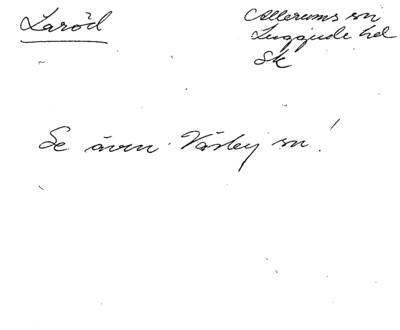 Laröd
Allerums sn
Luggude hd
Sk
Se även Väsby sn!